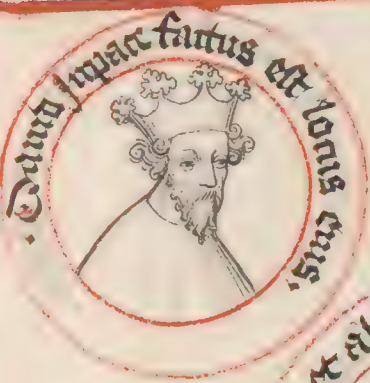 · Dauid in pace factus est locus eius ·
et